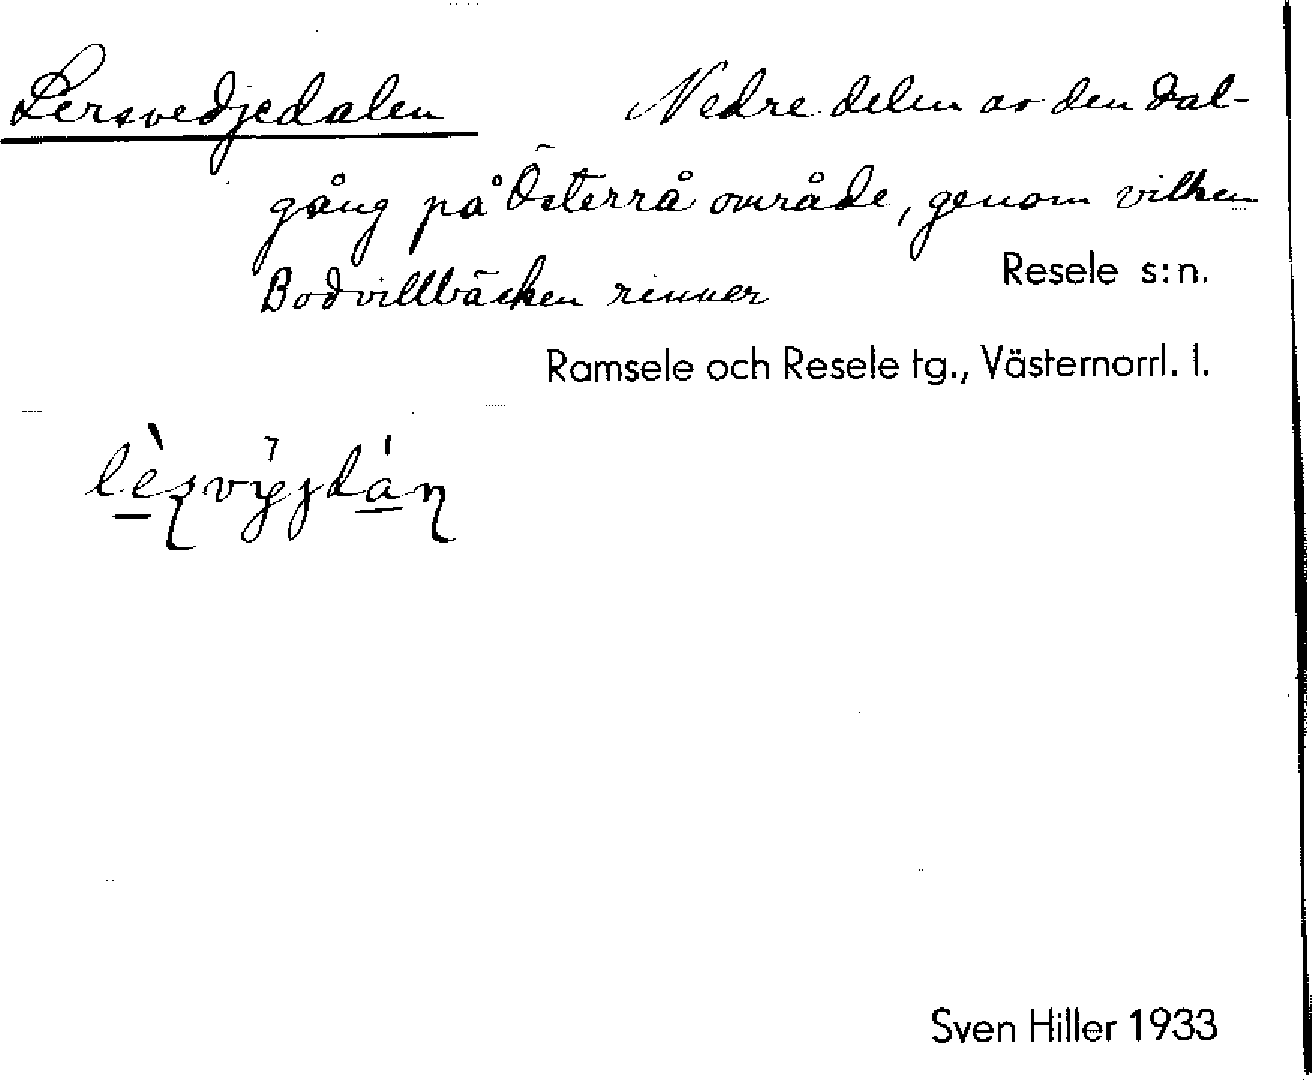 Lersvedjedalen Nedre delen av den dal-
gång på Österrå område, genom vilken
Bodvillbäcken rinner
Resele s:n.
Ramsele och Resele tg., Västernorrl. l.
Sven Hiller 1933